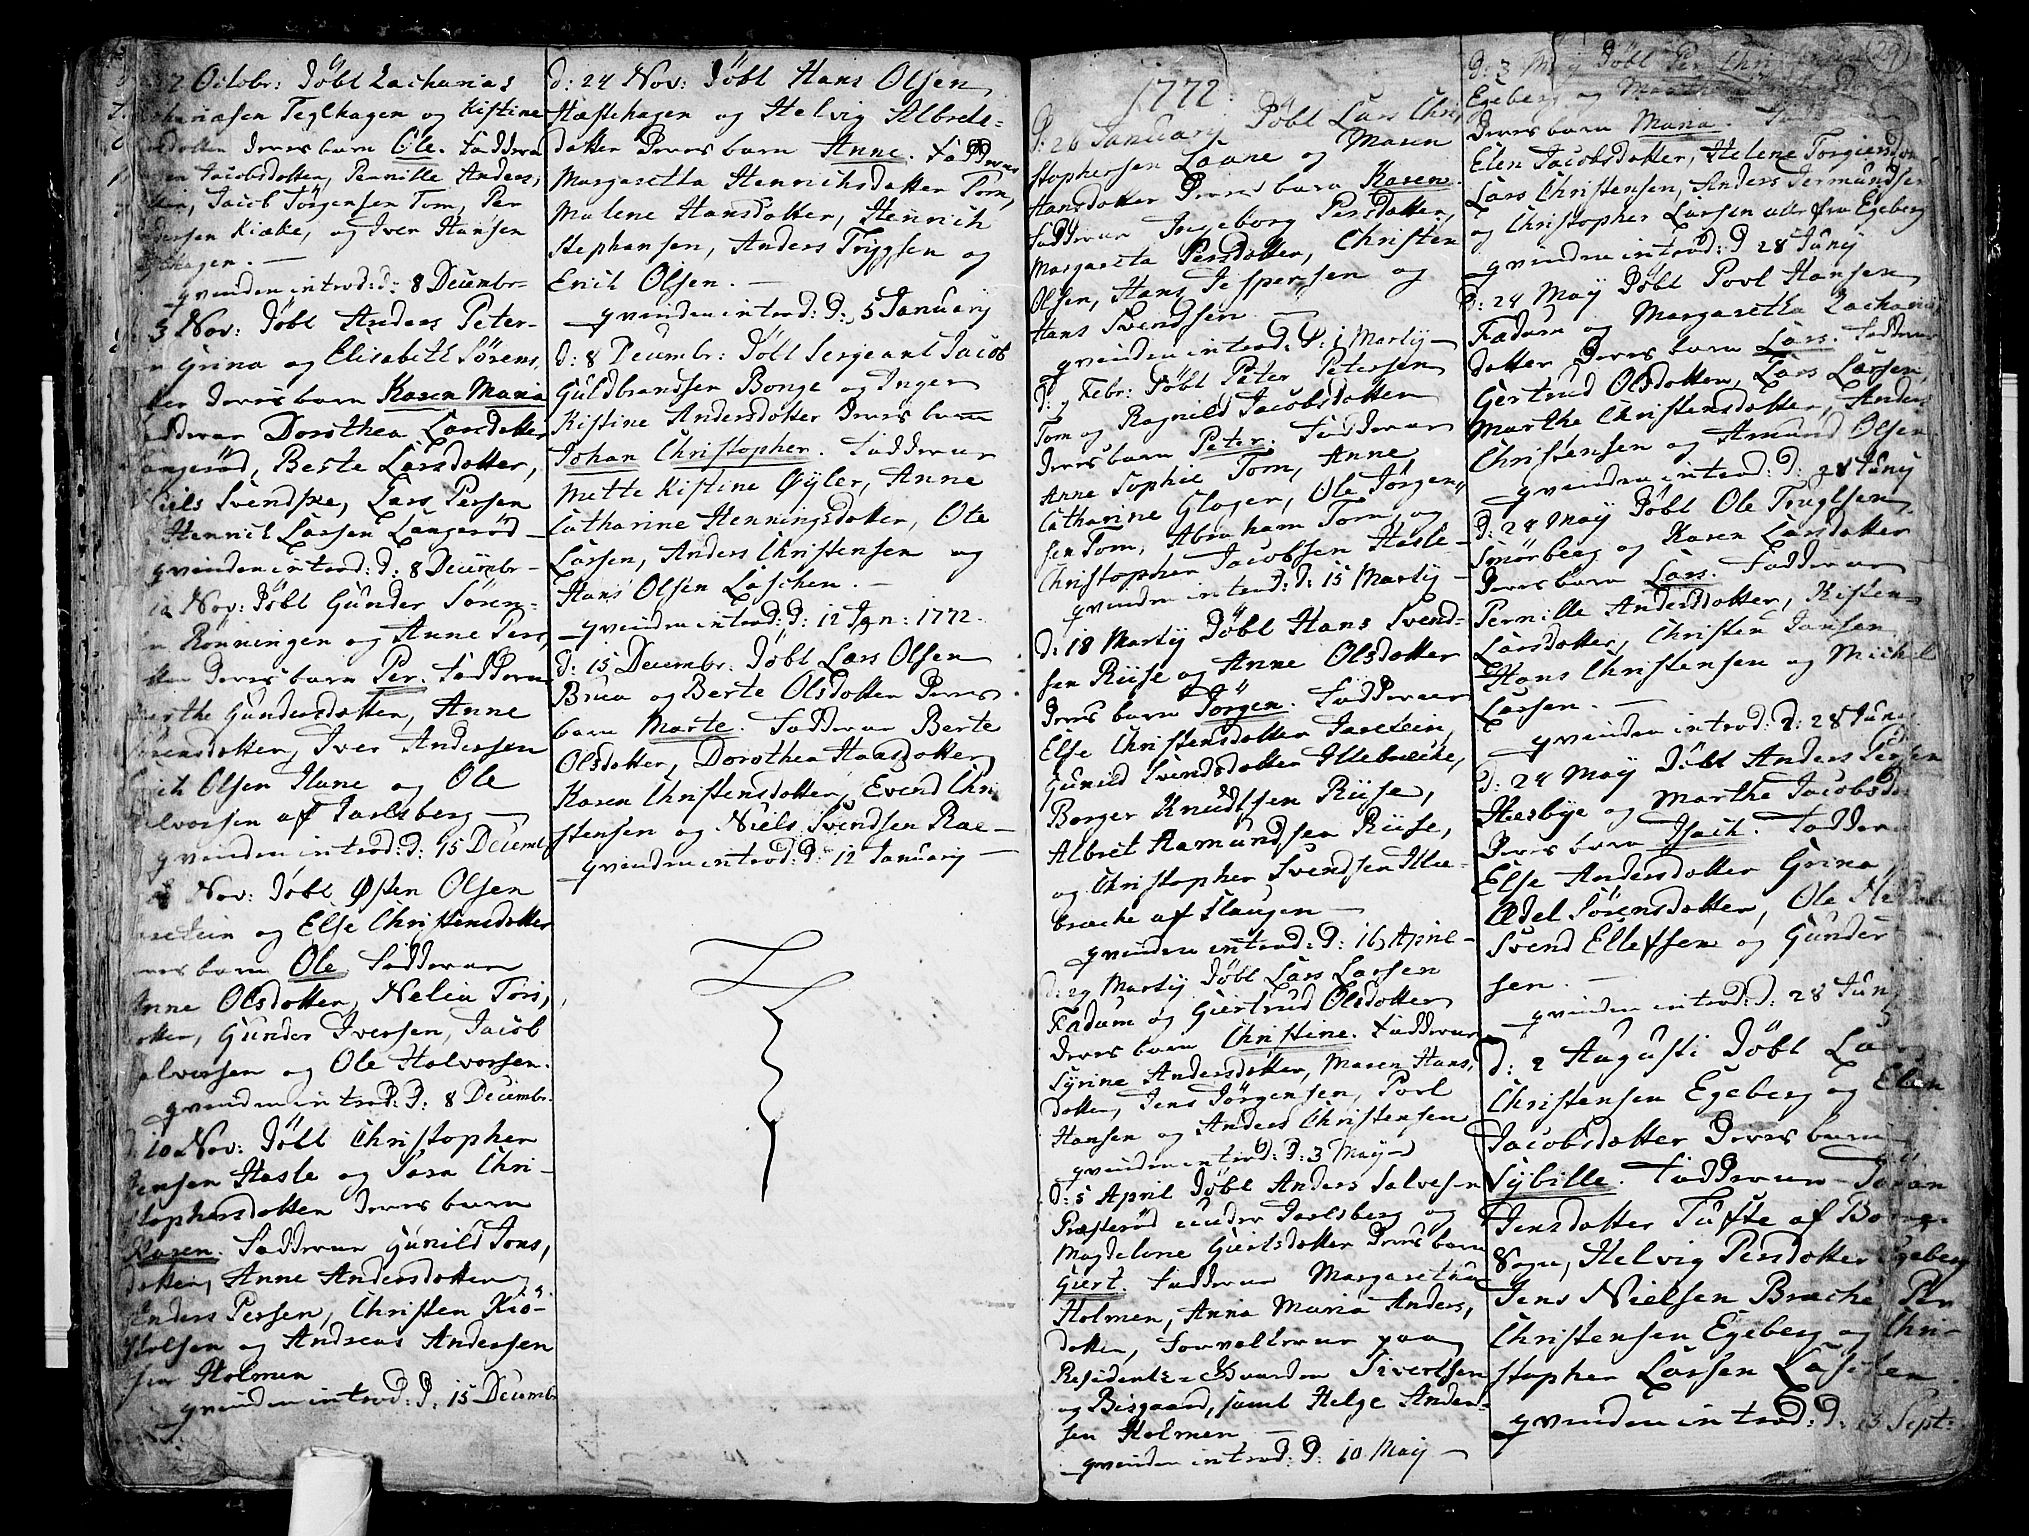 27 Octobr: Döbt Zacharias
Teglhagen og Kistine
deres barn Ole. Fadderne
Jacobsdotter, Pernille Anders,
Jacob Jörgensen Tom, Per
Kiæke, og Iver Hansen
qvinden introd: d: 8 Decembr
3 Nov: Döbt Anders Peter-
Grina og Elisabeth Sörens,
deres barn Karen Maria
Dorothea Larsdotter
Berte Larsdotter,
Niels Svendske, Lars Persen
Henrich Larsen Langeröd
qvinden introd: d: 8 Decembr
Nov: Döbt Gunder Sören-
Rönningen og Anne Pers,
deres barn Per. Fadderne
Gundersdotter, Anne
Iver Andersen
Olsen Ilane og Ole
af Jarlsberg
qvinden introd: d: 15 Decemb
Nov: Döbt Østen Olsen
og Else Christensdotter
barn Ole Fadderne
Anne Olsdotter, Nelia Tors,
Gunder Iversen, Jacob
og Ole Halvorsen.
qvinden introd: d: 8 Decembr.
d: 10 Nov: Döbt Christopher
Jensen Hasle og Sara Chri-
stophersdotter deres barn
Karen. Fadderne Gunild Jons,
dotter, Anne Andersdotter
Anders Persen, Christen Kiö-
og Andreas Andersen
Holmen
qvinden introd: d: 15 Decemb
d: 24 Nov: Döbt Hans Olsen
Hæstehagen og Helvig Albrets-
dotter deres barn Anne. Fadderne
Margaretta Henrichsdotter Tom,
Malene Hansdotter, Henrich
Stephansen, Anders Tryggsen og
Erich Olsen.
qvinden introd: d: 5 January
d: 8 Decembr: Döbt Sergeant Jacob
Guldbrandsen Bonge og Inger
Kistine Andersdotter deres barn
Johan Christopher. Fadderne
Mette Kistine Øyler, Anne
Catharine Henningsdotter, Ole
Larsen, Anders Christensen og
Hans Olsen Laschen.
qvinden introd: d: 12 Jan: 1772.
d: 15 Decembr: Döbt Lars Olsen
Brua og Berte Olsdotter deres
barn Marte. Fadderne Berte
Olsdotter, Dorothea Hansdotter
Karen Christensdotter, Evend Chri
stensen og Niels Svendsen Rae
qvinden introd: d: 12 January
1772
d: 26 January Döbt Lars Chri,
stophersen Laane og Maren
Hansdotter deres barn Karen.
Fadderne Ingeborg Persdotter,
Margareta Persdotter, Christen
Olsen, Hans Jespersen og
Hans Svendsen
qvinden introd: d: 1 Martij
d: 9 Febr: Döbt Peter Petersen
Tom og Ragnild Jacobsdotter
deres barn Peter. Fadderne
Anne Sophie Tom, Anne
Catharine Gloger, Ole Jörgen,
sen Tom, Abraham Tom, og
Christopher Jacobsen Hasle
qvinden introd: d: 15 Martij
d: 18 Martij Döbt Hans Svend-
sen Riise og Anne Olsdotter
deres barn Jörgen. Fadderne
Else Christensdotter Jarelein,
Gunild Svendsdotter Illebreche,
Borger Knudtsen Riise,
Albret Hamundsen Riise,
og Christopher Svendsen Ille-
breche af Slaugen
qvinden introd: d: 16 April
d: 29 Martij Döbt Lars Larsen
Fadum og Giertrud Olsdotter
deres barn Christine. Fadderne
Syrine Andersdotter, Maren Hans,
dotter, Jens Jörgensen, Povl
Hansen og Anders Christensen
qvinden introd: d: 3 May
d: 5 April Döbt Anders Salvesen
Præsteröd under Jarlsberg og
Magdelene Giertsdotter deres barn
Giert. Fadderne Margaretha
Holmen, Anna Maria Anders,
dotter, Forvalterne paa
Residentz Sivertsen
og Bisgaard, samt Helge Ander-
sen Holmen
qvinden introd: d: 10 May
29
d: 3 May Döbt Per Christensen
Egeberg og Marthe
deres barn Maria.
Elen Jacobsdotter, Helene Torgiersdotter
Lars Christensen, Anders Jermundsen
og Christopher Larsen alle fra Egeberg
qvinden introd: d 28 Junij
d: 24 May Döbt Povl Hansen
Fadum og Margaretha Zacharias,
dotter deres barn Lars. Fadderne
Gertrud Olsdotter, Lars Larsen,
Marthe Christensdotter, Anders
Christensen og Amund Olsen
qvinden introd: d: 28 Junij
d: 24 May Döbt Ole Truglsen
Smörberg og Karen Larsdotter
deres barn Lars. Fadderne
Pernille Andersdotter, Kisten
Larsdotter, Christen Jansen
Hans Christensen og Michel
Larsen.
qvinden introd: d: 28 Junij
d: 24 May Döbt Anders Persen
Hesbye og Marthe Jacobsdo
deres barn Isach. Fadderne
Else Andersdotter Grina,
Ædel Sörensdotter, Ole
Svend Ellefsen og Gunder
sen.
qvinden introd: d: 28 Junij
d: 2 Augusti Döbt Lars
Christensen Egeberg og Elen
Jacobsdotter deres barn
Sybille. Fadderne
Jensdotter Tufte af Borre
Sogn, Helvig Persdotter Egeberg
Jens Nielsen Breche, Per
Christensen Egeberg og Chri-
stopher Larsen Laschen.
qvinden introd: d: 13 Sept: